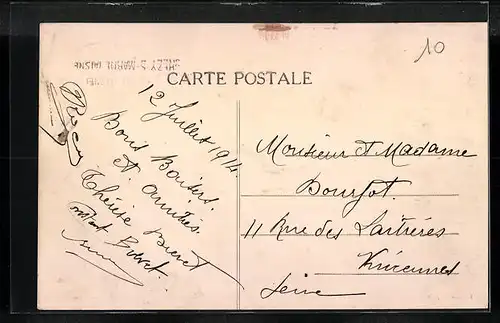 10
CARTE POSTALE
12 Juillet 1914.
Bons Baisers.
et amitiés.
Thérèse
Monsieur et Madame
Bourfot.
11 Rue des Laitières
Vincennes
Seine